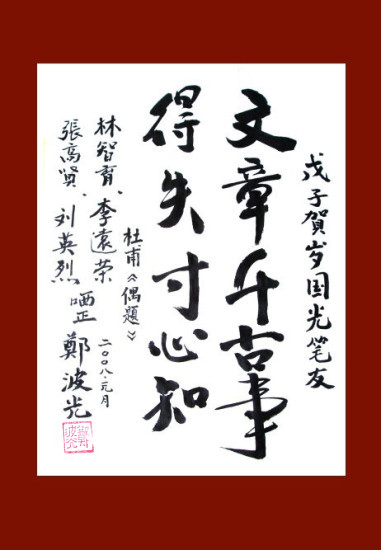 戊子賀岁国光笔友
文章千古事
得失寸心知
杜甫《偶题》
二〇〇八.元月
林智育、李遠荣
張高賢、刘英烈 哂正
鄭波光